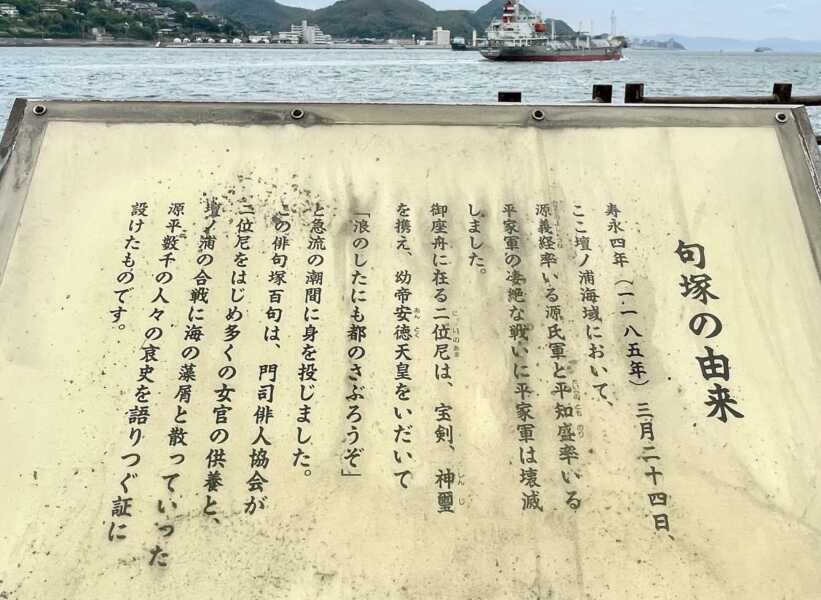 句塚の由来
寿永四年（一一八五年）三月二十四日、
ここ壇ノ浦海域において、
源義経率いる源氏軍と平知盛率いる
平家軍の凄絶な戦いに平家軍は壊滅
しました。
御座舟に在る二位尼は、宝剣、神璽
を携え、幼帝安徳天皇をいだいて
「浪のしたにも都のさぶろうぞ」
と急流の潮間に身を投じました。
この俳句塚百句は、門司俳人協会が
二位尼をはじめ多くの女官の供養と、
壇ノ浦の合戦に海の藻屑と散っていった
源平数千の人々の哀史を語りつぐ証に
設けたものです。